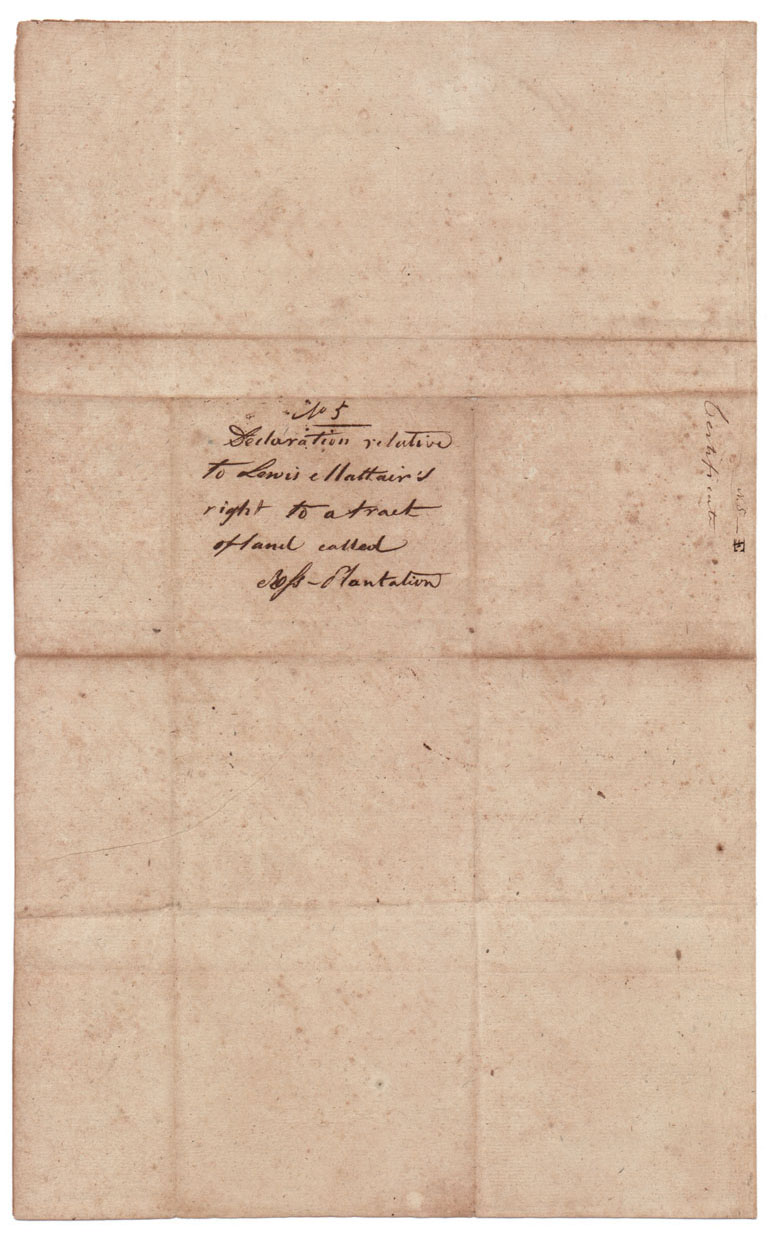 No 5
Declaration relative
to Lewis Mattair's
right to a tract
of land called
Plantation
Certificate
No 5 — E